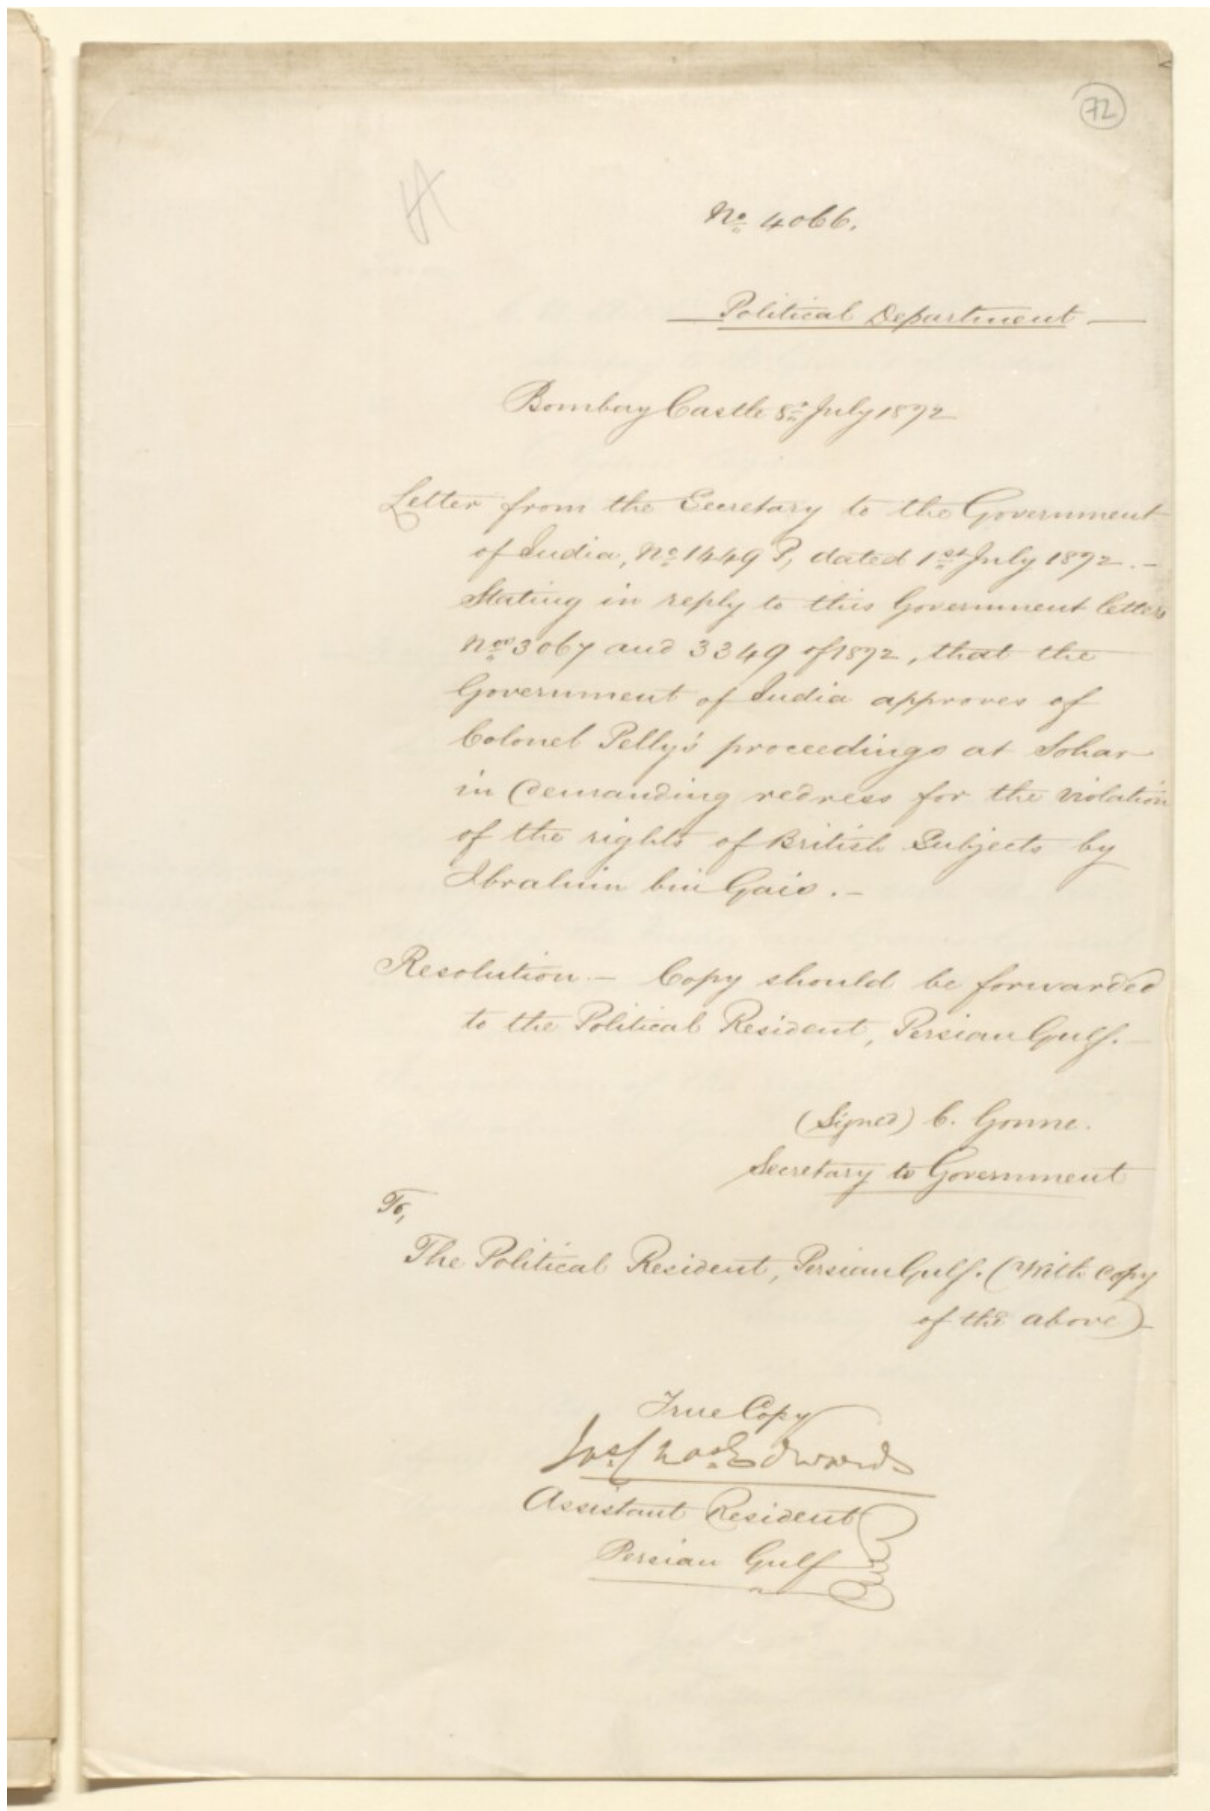 72
No 4066.
Political Department
Bombay Castle 8th July 1872
Letter from the Secretary to the Government
of India, No 1449 P, dated 1st July 1872. -
Stating in reply to this Government letters
Nos 3067 and 3349 of 1872, that the
Government of India approves of
Colonel Pelly's proceedings at Sohar
in demanding redress for the violation
of the rights of British Subjects by
Ibrahim bin Gais. -
Resolution - Copy should be forwarded
to the Political Resident, Persian Gulf. -
(Signed) C. Gonne.
Secretary to Government
To,
The Political Resident, Persian Gulf. (With copy
of the above)
True Copy
Edwards
Assistant Resident
Persian Gulf